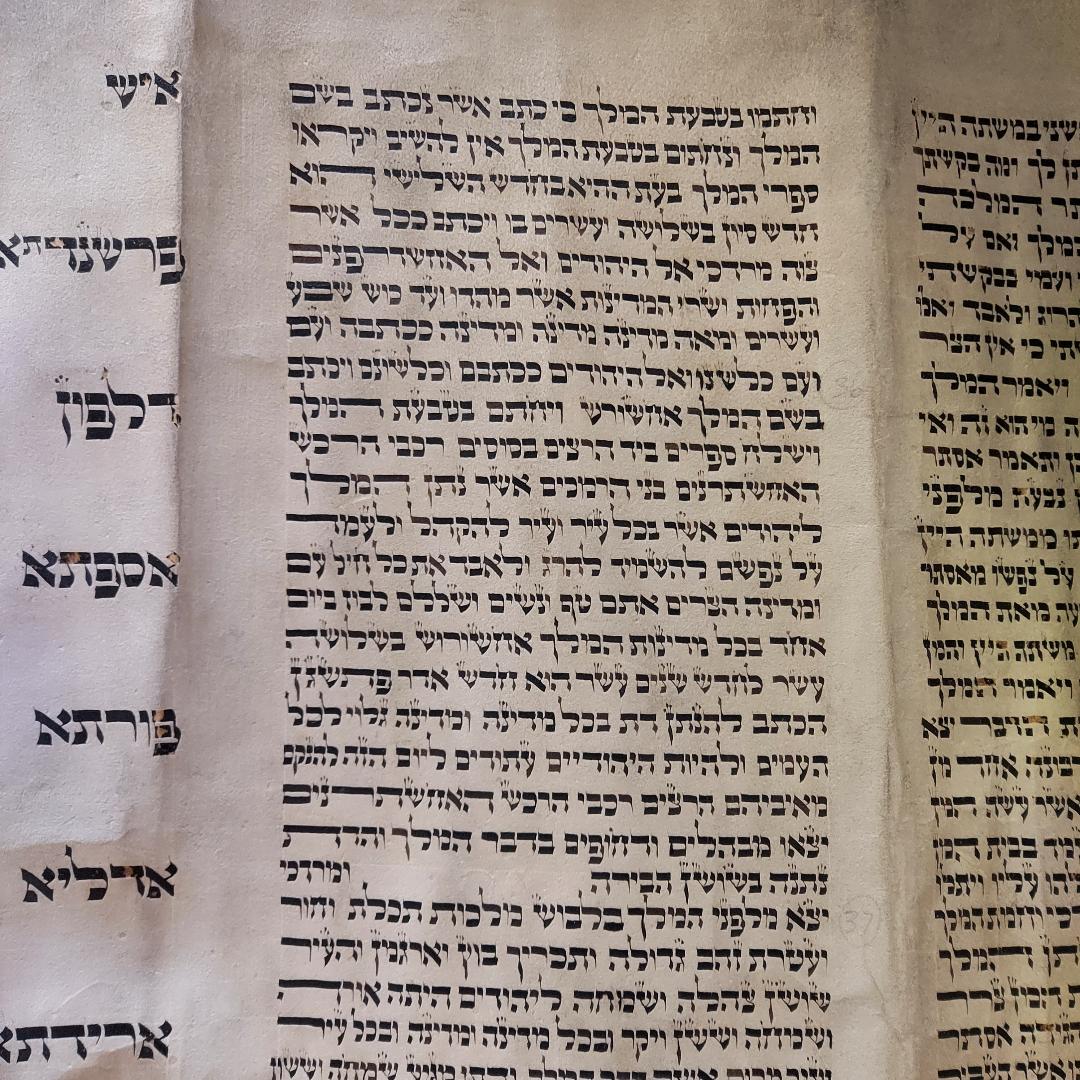 שני במשתה היין
תן לך ומה בקשתך
תר המלכה
המלך ואם על
ועמי בבקשתי
הרוג ולאבד ואלו
תי כי אין הצר
ויאמר המלך
ה מי הוא זה ואי
כן ותאמר אסתר
נבעת מלפני
ממשתה היין
על נפשו מאסתר
מאת המלך
משתה היין והמן
ויאמר המלך
ת הדבר יצא
אחד מן
אשר עשה המן
בבית המן
עליו ויתלו
וחמת המלך
נתן המלך
המן צרר
הגידה אסתר
וחתמו בטבעת המלך כי כתב אשר נכתב בשם
המלך ונחתום בטבעת המלך אין להשיב ויקראו
ספרי המלך בעת ההיא בחדש השלישי הוא
חדש סיון בשלושה ועשרים בו ויכתב ככל אשר
צוה מרדכי אל היהודים ואל האחשדרפנים
והפחות ושרי המדינות אשר מהדו ועד כוש שבע
ועשרים ומאה מדינה מדינה ומדינה ככתבה ועם
ועם כלשנו ואל היהודים ככתבם וכלשונם ויכתב
בשם המלך אחשורש ויחתם בטבעת המלך
וישלח ספרים ביד הרצים בסוסים רכבי הרכש
האחשתרנים בני הרמכים אשר נתן המלך
ליהודים אשר בכל עיר ועיר להקהל ולעמד
על נפשם להשמיד להרג ולאבד את כל חיל עם
ומדינה הצרים אתם טף ונשים ושללם לבוז ביום
אחד בכל מדינות המלך אחשורוש בשלושה
עשר לחדש שנים עשר הוא חדש אדר פתשגן
הכתב להנתן דת בכל מדינה ומדינה גלוי לכל
העמים ולהיות היהודיים עתודים ליום הזה להנקם
מאיביהם הרצים רכבי הרכש האחשתרנים
יצאו מבהלים ודחופים בדבר המלך והדת
נתנה בשושן הבירה ומרדכי
יצא מלפני המלך בלבוש מלכות תכלת וחור
ועטרת זהב גדולה ותכריך בוץ וארגמן והעיר
שושן צהלה ושמחה ליהודים היתה אורה
ושמחה וששן ויקר ובכל מדינה ומדינה ובכל עיר
ועיר מקום אשר דבר המלך ודתו מגיע שמחה וששון
איש
פרשנדתא
דלפון
אספתא
פורתא
אדליא
ארידתא